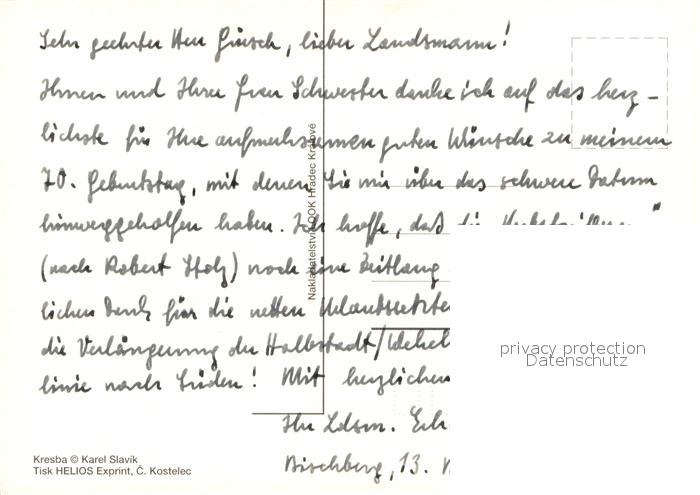 Sehr geehrter Herr, lieber Landsmann!
Ihnen und Ihrer Frau Schwester danke ich auf das herz-
lichste für Ihre aufmerksamen guten Wünsche zu meinem
70. Geburtstag, mit denen Sie mir über das schwere Datum
hinweggeholfen haben. Ich hoffe, daß die
(nach Robert Stolz) noch eine Zeitlang
lichen Dank für die netten
die Verlängerung der Halbstadt/
linie nach Süden! Mit herzlichen
Ihr Ldsm.
Bischberg, 13.
Nakladatelství OOK Hradec Králové
privacy protection
Datenschutz
Kresba © Karel Slavík
Tisk HELIOS Exprint, Č. Kostelec